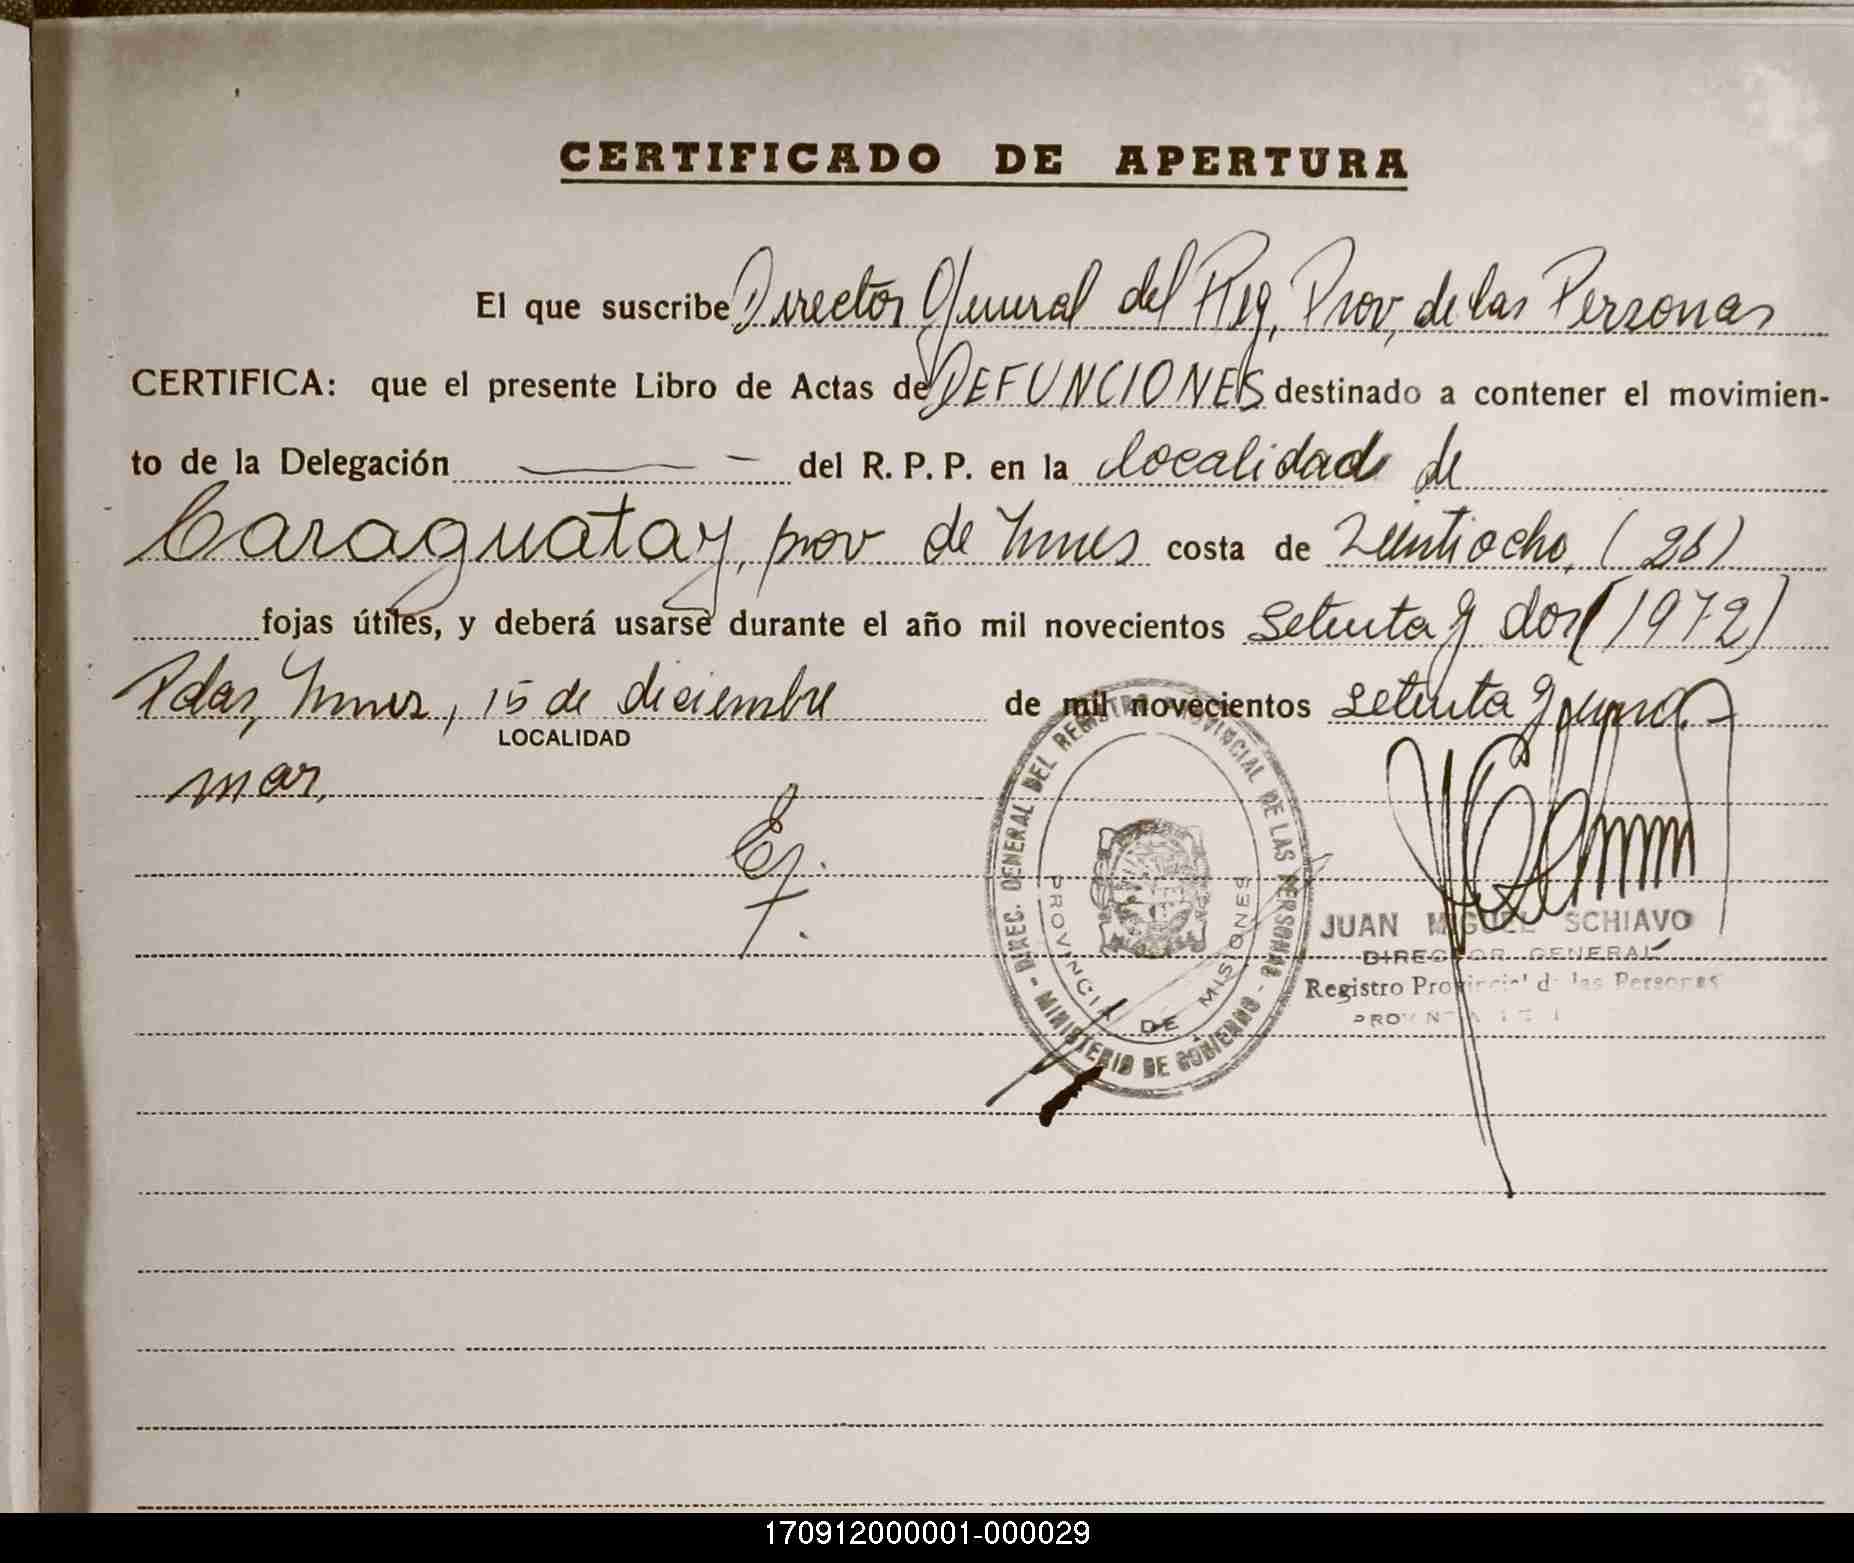 CERTIFICADO DE APERTURA
El que suscribe Director General del Reg. Prov. de las Personas
CERTIFICA: que el presente Libro de Actas de DEFUNCIONES destinado a contener el movimien-
to de la Delegación ——— — del R. P. P. en la localidad de
Caraguatay, prov de Mnes costa de Veintiocho, (28)
fojas útiles, y deberá usarse durante el año mil novecientos setenta y dos (1972)
Pdas, Mnes, 15 de diciembre de mil novecientos setenta y uno.
LOCALIDAD
mar.
DIREC. GENERAL DEL REGISTRO PROVINCIAL DE LAS PERSONAS - MINISTERIO DE GOBIERNO -
PROVINCIA DE MISIONES
JUAN MIGUEL SCHIAVO
DIRECTOR GENERAL
Registro Provincial de las Personas
170912000001-000029